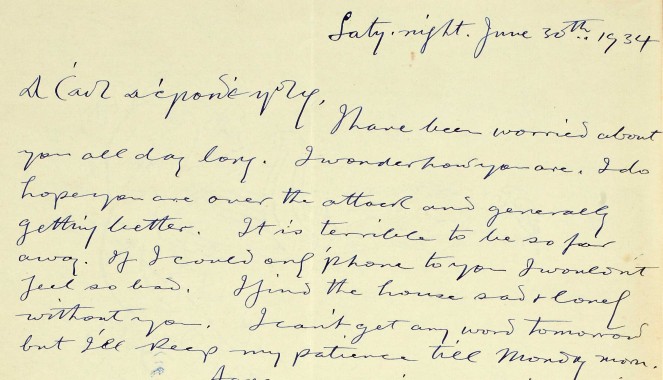 Saty. night. June 30th. 1934
I have been worried about
you all day long. I wonder how you are. I do
hope you are over the attack and generally
getting better. It is terrible to be so far
away. If I could only 'phone to you I wouldn't
feel so bad. I find the house sad & lonely
without you. I can't get any word tomorrow
but I'll keep my patience till Monday morn.